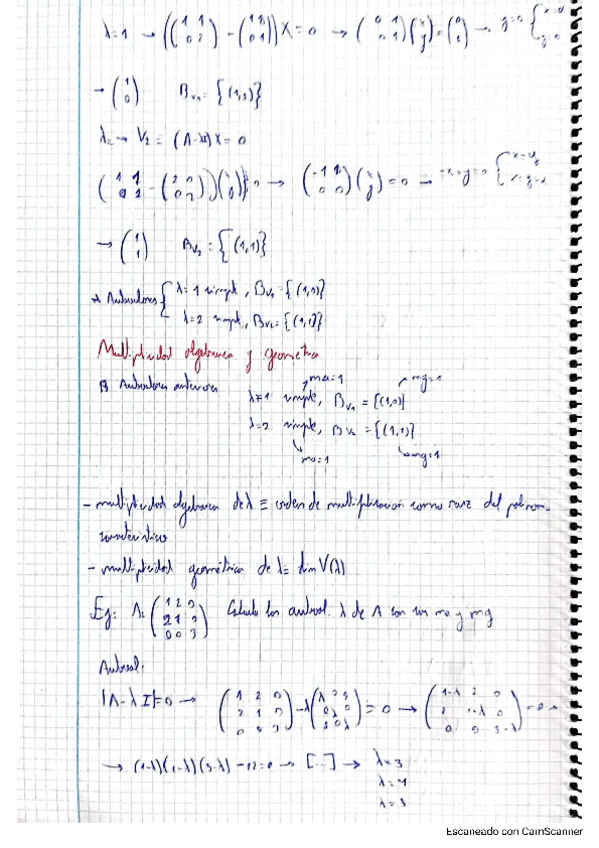 λ=1 → ((1 1 / 0 2) - (1 0 / 0 1)) X = 0 → (0 1 / 0 1)(x / y) = (0 / 0) → y=0 {x=α / y=0
→ (1 / 0) B_V1 = {(1,0)}
λ2 → V2 = (A-λI) X = 0
(1 1 / 0 2 - (2 0 / 0 2))(x / y) = 0 → (-1 1 / 0 0)(x / y) = 0 → -x+y=0
→ (1 / 1) B_V2 = {(1,1)}
* Autovalores { λ=1 simple, B_V1 = {(1,0)}
λ=2 simple, B_V2 = {(1,1)}
Multiplicidad algebraica y geométrica
Autovalores anteriores
ma=1 mg=1
λ=1 simple, B_V1 = {(1,0)}
λ=2 simple, B_V2 = {(1,1)}
ma=1 mg=1
- multiplicidad algebraica de λ ≡ orden de multiplicación como raiz del polinomio
característico
- multiplicidad geométrica de λ = dim V(λ)
Ej: A: (1 2 0 / 2 1 0 / 0 0 3) Calcula los autoval. λ de A con sus ma y mg
Autoval.
|A-λI|=0 → (1 2 0 / 2 1 0 / 0 0 3) - (λ 0 0 / 0 λ 0 / 0 0 λ) = 0 → (1-λ 2 0 / 2 1-λ 0 / 0 0 3-λ) = 0 →
→ (1-λ)(1-λ)(3-λ) - 12 = 0 → [...] → λ=3
λ=3
Escaneado con CamScanner